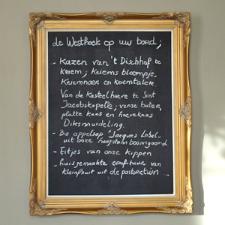 de Westhoek op uw bord;
- Kazen van 't Dischhof de
kriem; kriems bloempje,
Kriemnoor en koemtaler.
Van de Kasteelhoeve te Sint
Jacobskapelle; verse boter,
platte kaas en hoevekaas
Diksmuideling.
- De appelsap "Jacques Lobel"
uit onze hoogstam boomgaard
- Eitjes van onze kippen
- huisgemaakte confituur van
kleinfruit uit de pastorietuin